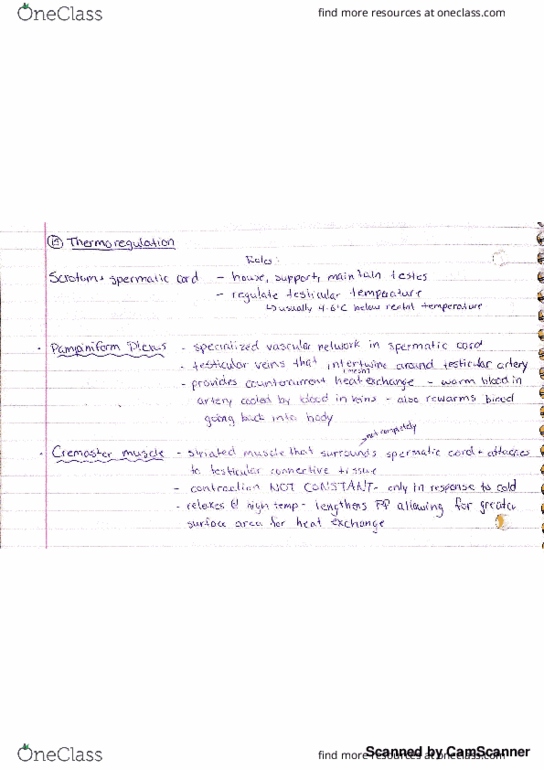 OneClass
find more resources at oneclass.com
Thermoregulation
Roles:
Scrotum + spermatic cord - house, support, maintain testes
- regulate testicular temperature
↳ usually 4-6°C below rectal temperature
• Pampiniform Plexus - specialized vascular network in spermatic cord
- testicular veins that intertwine around testicular artery
- provides countercurrent heat exchange - warm blood in
artery cooled by blood in veins - also rewarms blood
going back into body
not completely
• Cremaster muscle - striated muscle that surrounds spermatic cord + attaches
to testicular connective tissue
- contraction NOT CONSTANT - only in response to cold
- relaxes @ high temp - lengthens PP allowing for greater
surface area for heat exchange
OneClass
find more resources at oneclass.com
Scanned by CamScanner